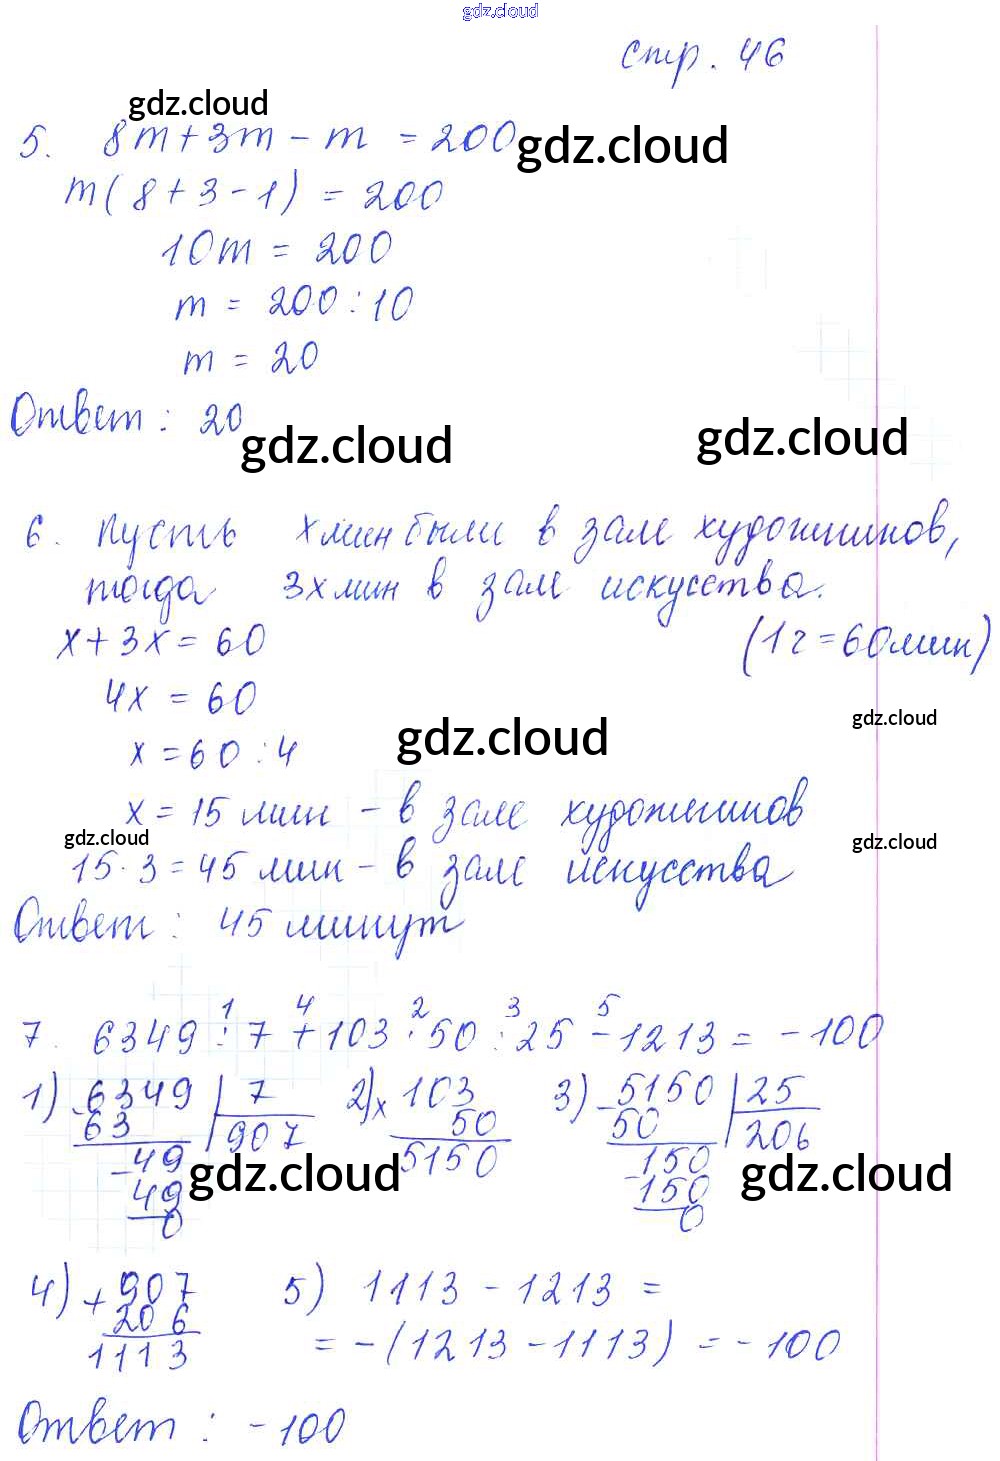 gdz.cloud
стр. 46
gdz.cloud
5. 8m + 3m - m = 200
gdz.cloud
m(8 + 3 - 1) = 200
10m = 200
m = 200 : 10
m = 20
Ответ: 20
gdz.cloud
gdz.cloud
6. Пусть x мин были в зале художников,
тогда 3x мин в зале искусства.
x + 3x = 60 (1 г = 60 мин)
4x = 60
gdz.cloud
gdz.cloud
x = 60 : 4
x = 15 мин - в зале художников
gdz.cloud
gdz.cloud
15 · 3 = 45 мин - в зале искусства
Ответ: 45 минут
1 4 2 3 5
7. 6349 : 7 + 103 · 50 : 25 - 1213 = -100
1) 6349 | 7 2) x 103 3) 5150 | 25
- 63 907 50 - 50 206
- 49 5150 - 150
gdz.cloud
gdz.cloud
49 150
0 0
4) + 907 5) 1113 - 1213 =
206 = -(1213 - 1113) = -100
1113
Ответ: -100